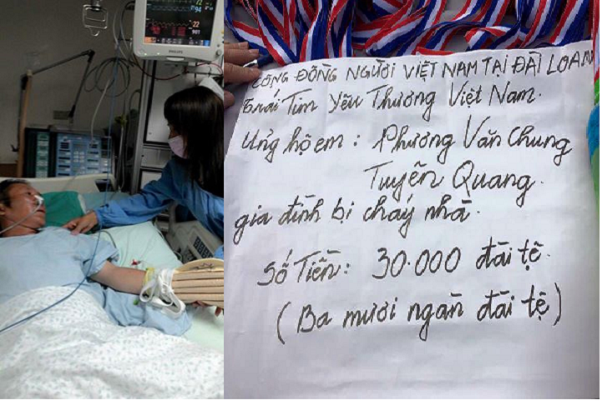 CỘNG ĐỒNG NGƯỜI VIỆT NAM TẠI ĐÀI LOAN
Trái Tim Yêu Thương Việt Nam.
Ủng hộ em: Phương Văn Chung
Tuyên Quang.
gia đình bị cháy nhà.
Số Tiền: 30.000 đài tệ.
(Ba mươi ngàn đài tệ)